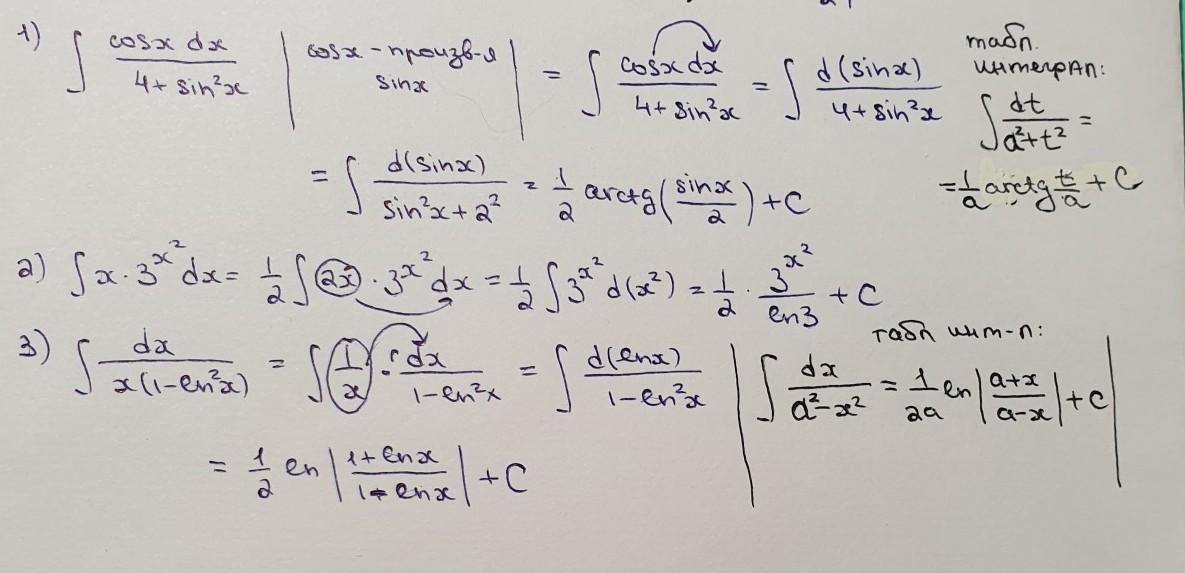 1) ∫ cosx dx / (4 + sin²x) | cosx - произв-я sinx | = ∫ cosx dx / (4 + sin²x) = ∫ d(sinx) / (4 + sin²x) табл. интеграл: ∫ dt / (a² + t²) =
= ∫ d(sinx) / (sin²x + 2²) = 1/2 arctg(sinx/2) + C = 1/a arctg t/a + C
2) ∫ x · 3^(x²) dx = 1/2 ∫ 2x · 3^(x²) dx = 1/2 ∫ 3^(x²) d(x²) = 1/2 · 3^(x²) / ln3 + C
табл инт-л:
3) ∫ dx / (x(1 - ln²x)) = ∫ 1/x · dx / (1 - ln²x) = ∫ d(lnx) / (1 - ln²x) | ∫ dx / (a² - x²) = 1/2a ln |(a+x)/(a-x)| + C |
= 1/2 ln |(1 + lnx)/(1 - lnx)| + C